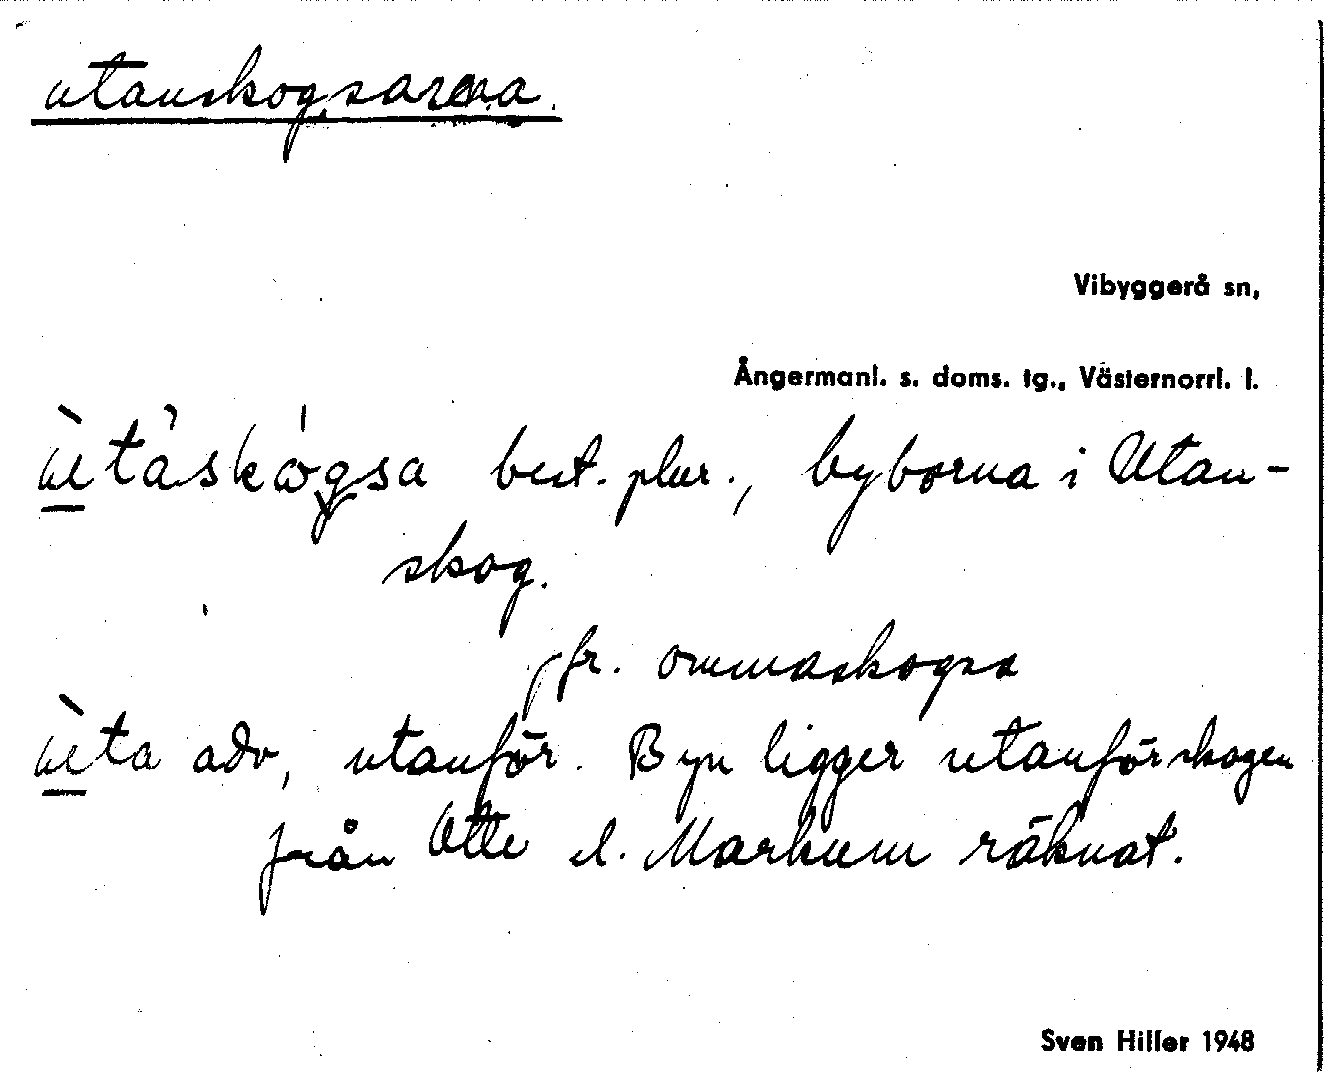 utanskogsarna.
Vibyggerå sn,
Ångermanl. s. doms. tg., Västernorrl. l.
best. plur., byborna i Utan-
skog.
jfr. ommaskogsa
adv, utanför. Byn ligger utanför skogen
från Utte el. Markum räknat.
Sven Hiller 1948